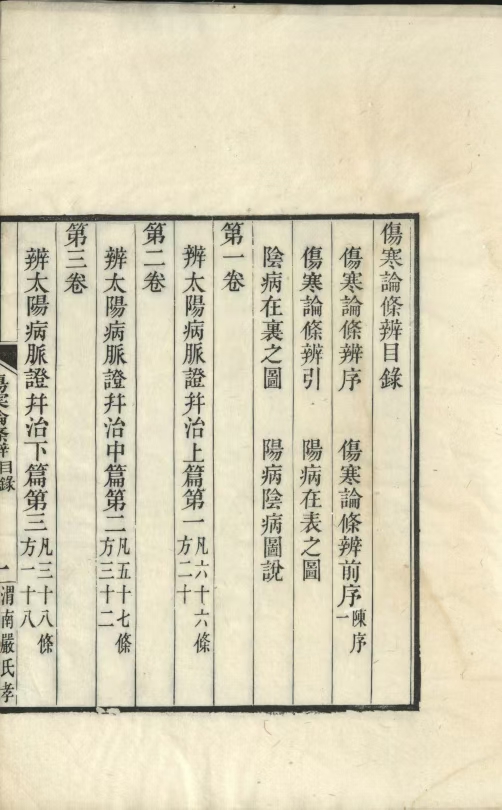 傷寒論條辨目錄
傷寒論條辨序 傷寒論條辨前序陳序一
傷寒論條辨引 陽病在表之圖
陰病在裏之圖 陽病陰病圖說
第一卷
辨太陽病脈證幷治上篇第一凡六十六條方二十
第二卷
辨太陽病脈證幷治中篇第二凡五十七條方三十二
第三卷
辨太陽病脈證幷治下篇第三凡三十八條方一十八
傷寒論條辨目錄 一 渭南嚴氏孝